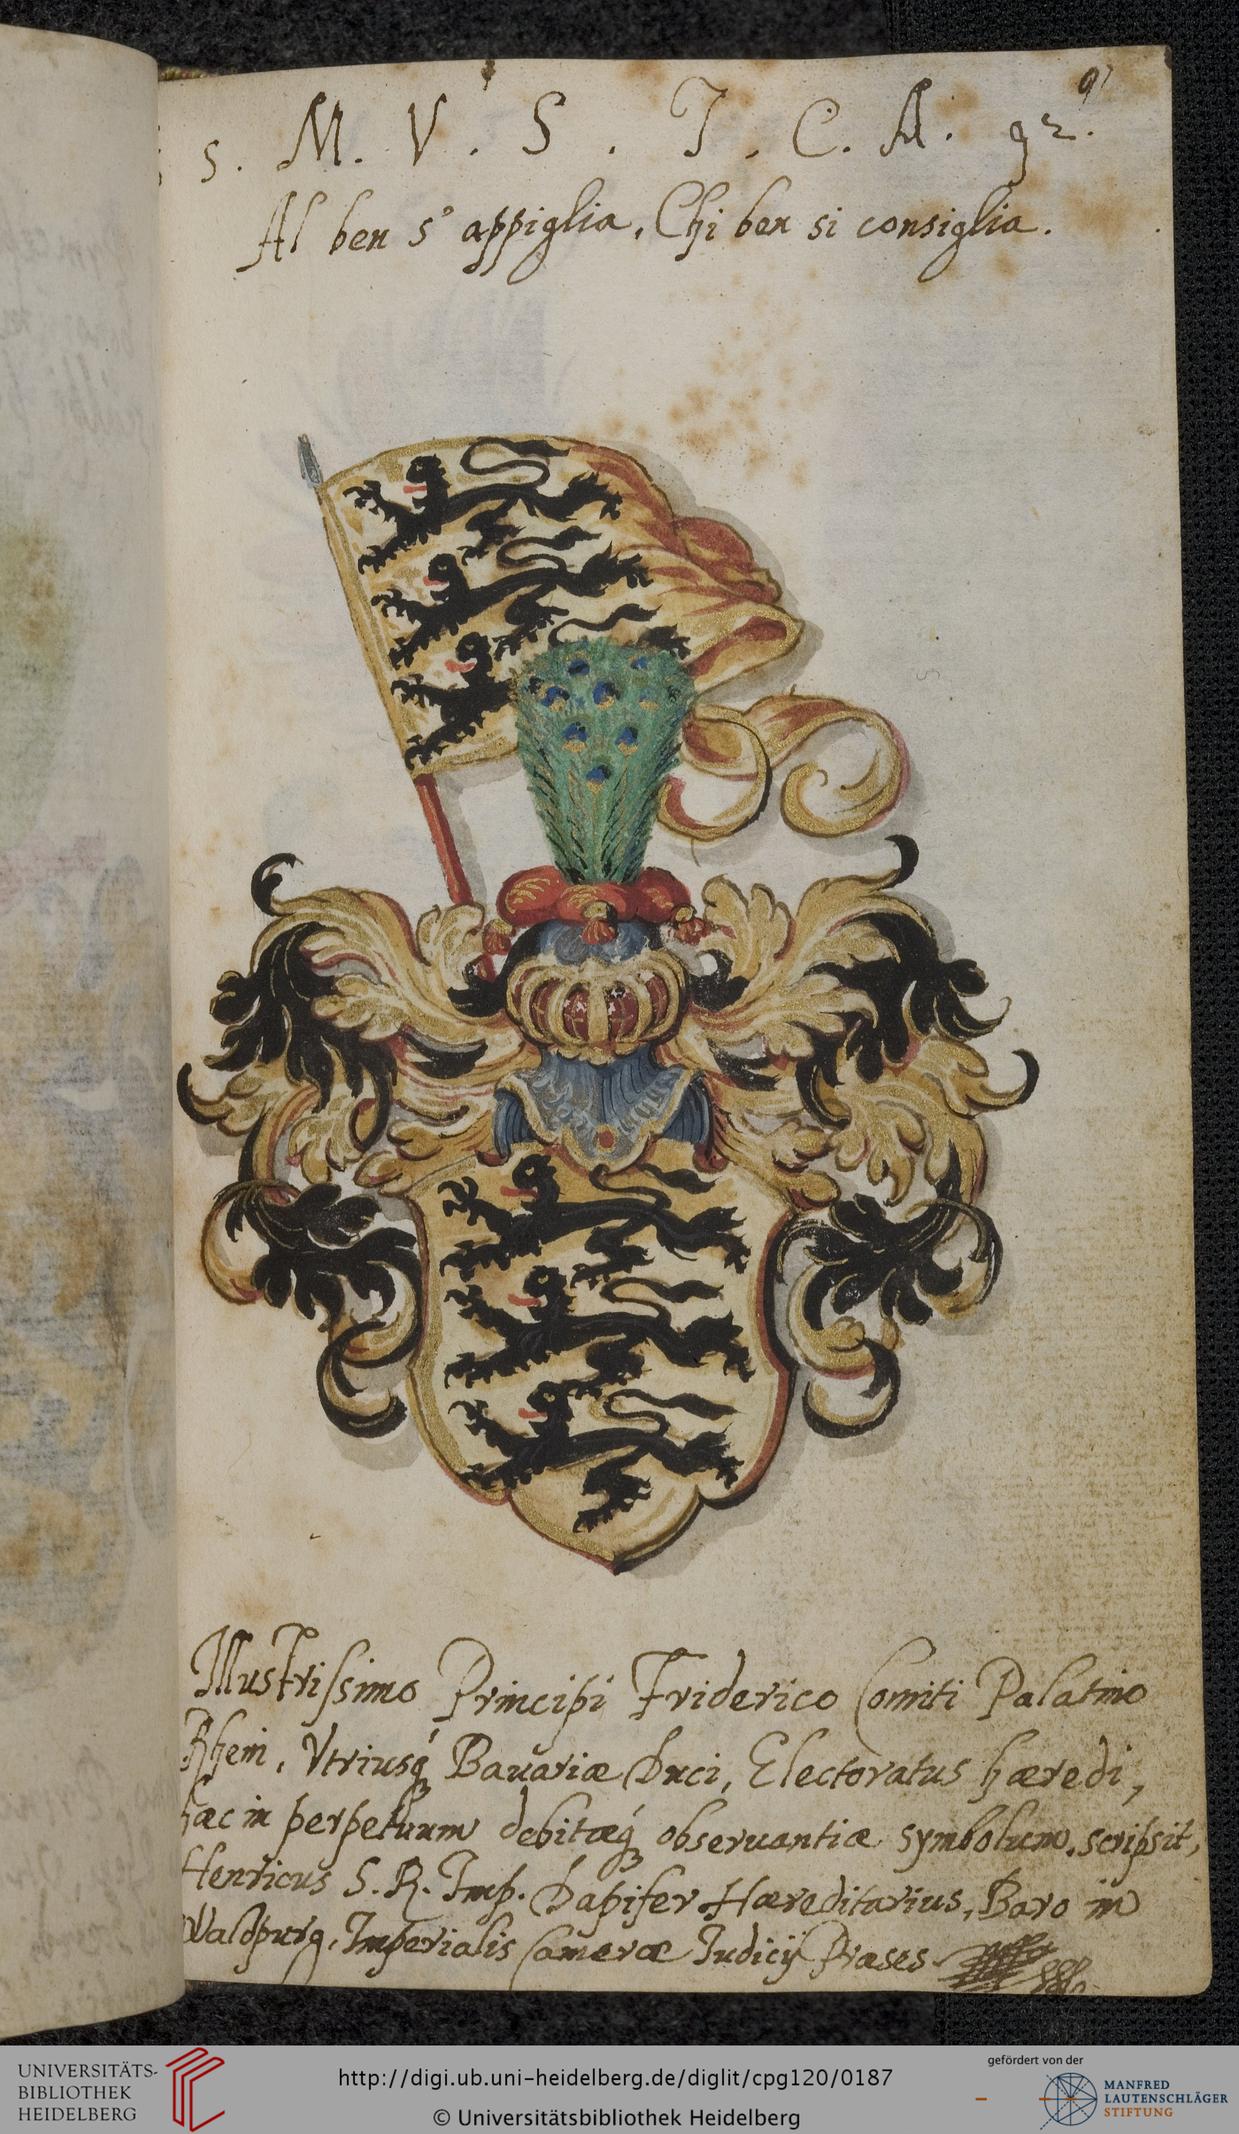 91
S. M. V. S. I. C. A. 92.
Al ben s' appiglia, Chi ben si consiglia.
Illustrissimo Principi Friderico Comiti Palatino
Rheni, Vtriusq́ Bauariæ Duci, Electoratus hæredi,
hæc in perpetuum debitæq́ obseruantiæ symbolum. scripsit,
Henricus S. R. Imp. Dapifer Hæreditarius, Baro in
Waldpurg, Imperialis Cameræ Iudicij Præses
UNIVERSITÄTS-
BIBLIOTHEK
HEIDELBERG
http://digi.ub.uni-heidelberg.de/diglit/cpg120/0187
© Universitätsbibliothek Heidelberg
gefördert von der
MANFRED
LAUTENSCHLÄGER
STIFTUNG